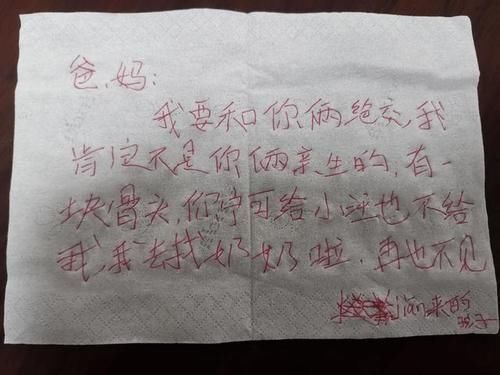 爸、妈：
我要和你俩绝交，我
肯定不是你俩亲生的，有一
块骨头，你宁可给小旺也不给
我，我去找奶奶啦，再也不见
jian来的
孩子